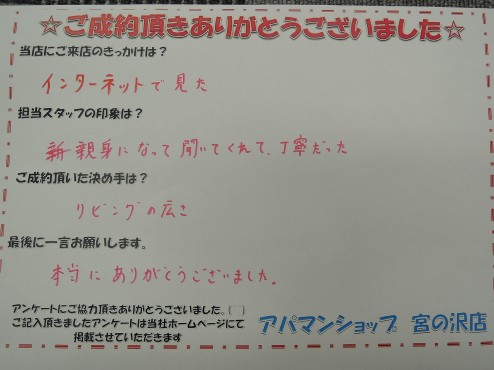 ☆ご成約頂きありがとうございました☆
当店にご来店のきっかけは？
インターネットで見た
担当スタッフの印象は？
親身になって聞いてくれて、丁寧だった
ご成約頂いた決め手は？
リビングの広さ
最後に一言お願いします。
本当にありがとうございました。
アンケートにご協力頂きありがとうございました。
ご記入頂きましたアンケートは当社ホームページにて
掲載させていただきます
アパマンショップ 宮の沢店